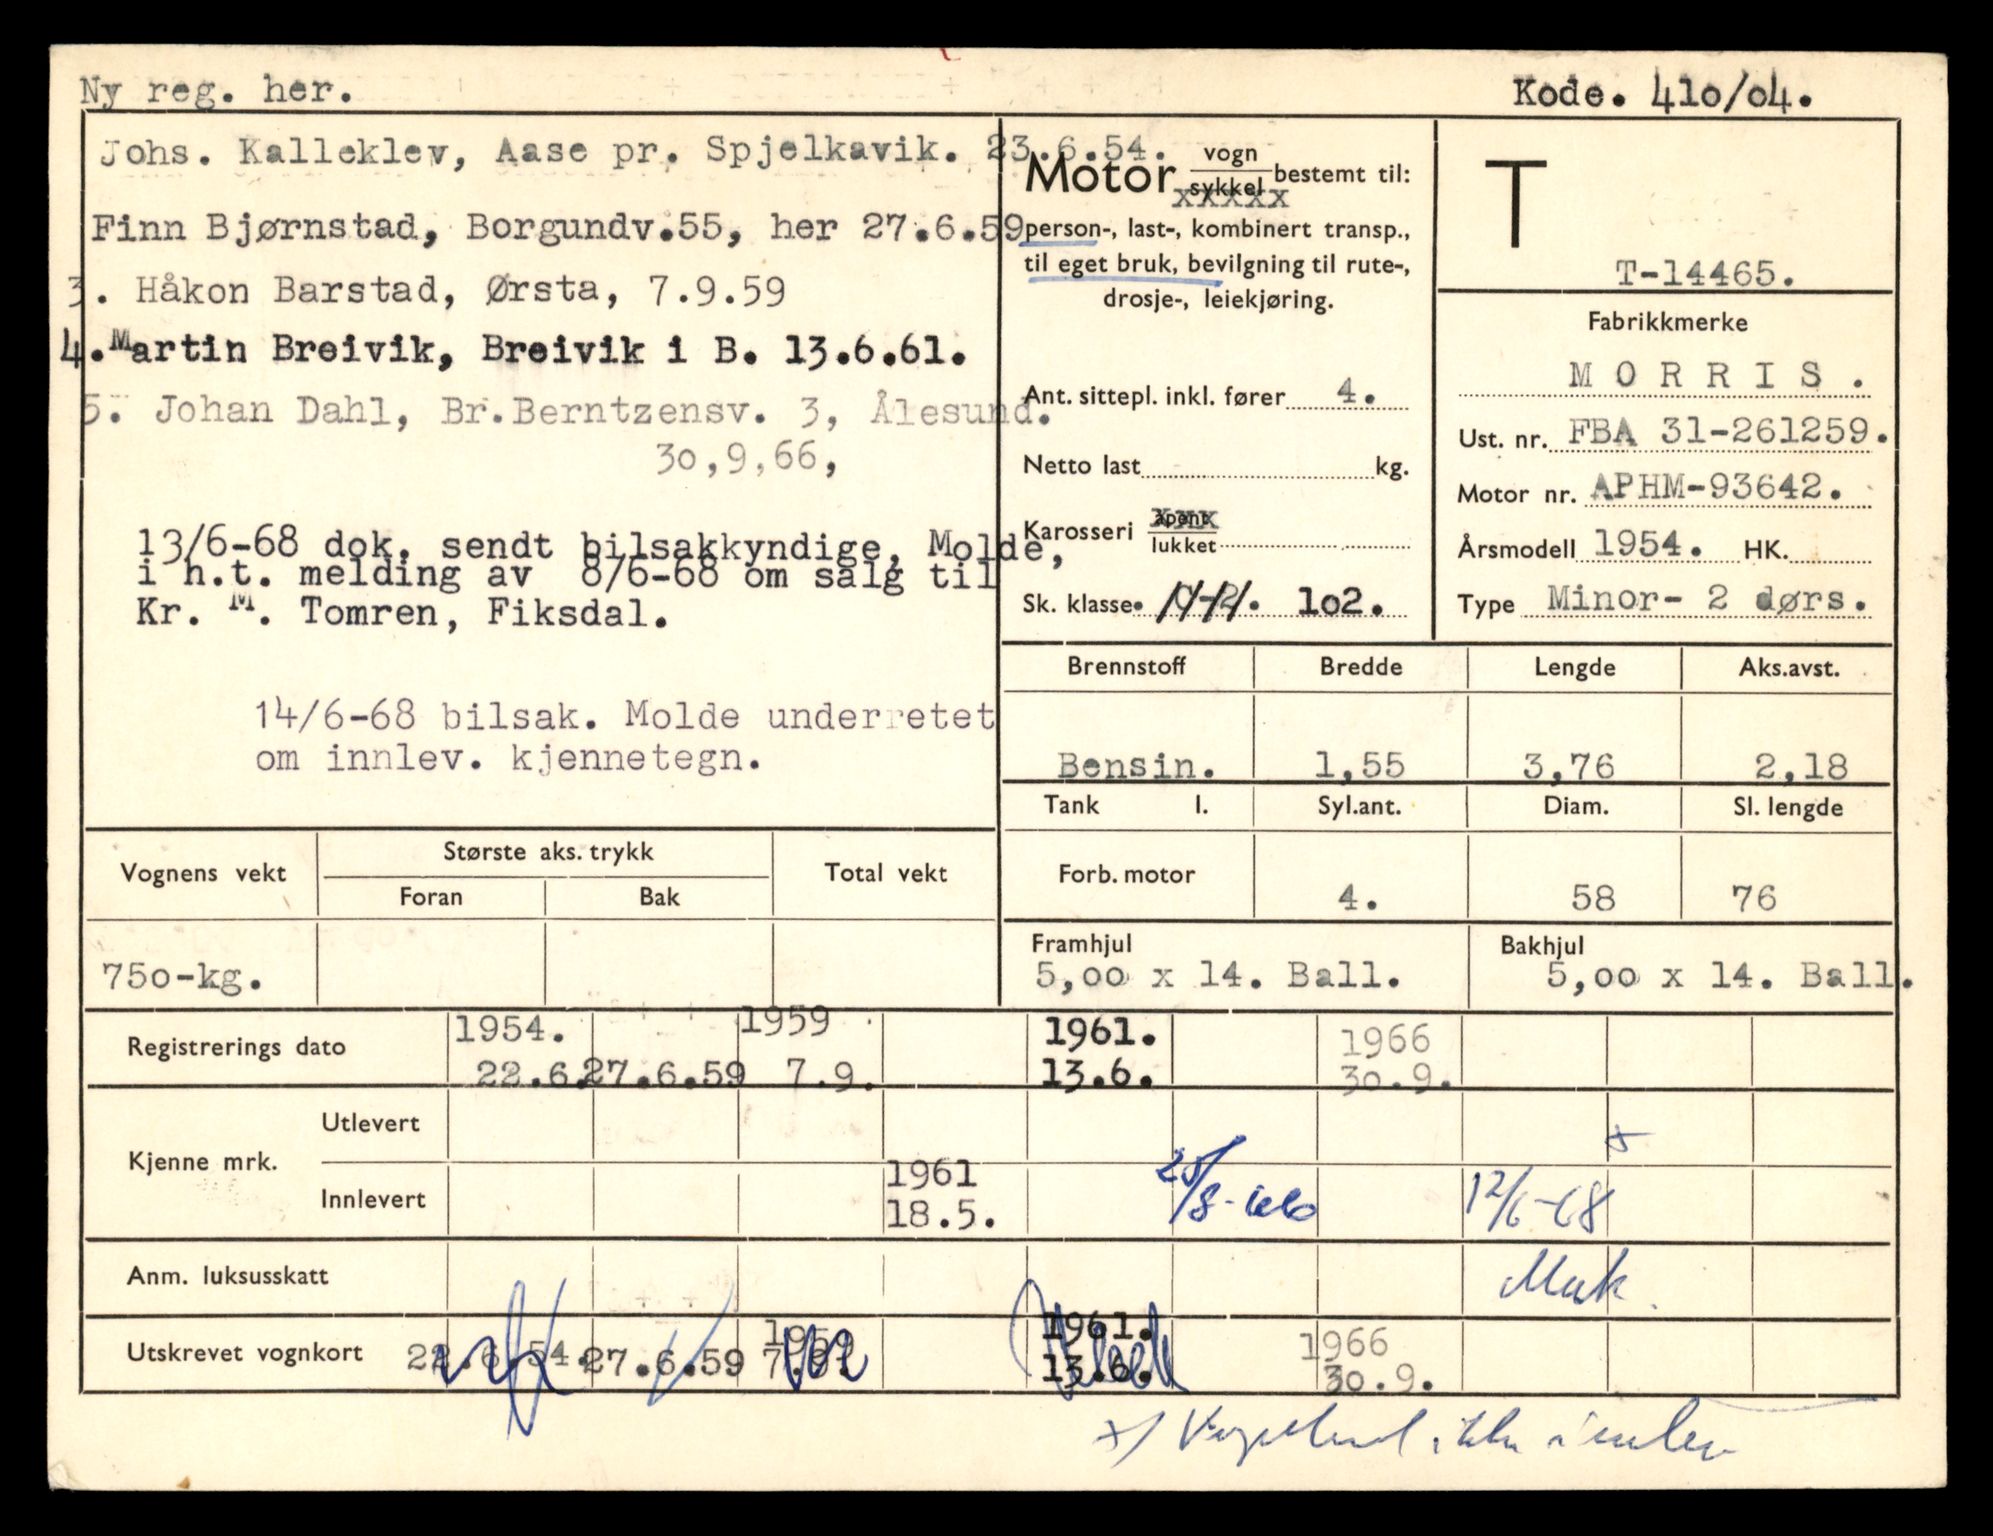 Ny reg. her.
Kode. 410/04.
Johs. Kalleklev, Aase pr. Spjelkavik. 23.6.54.
Finn Bjørnstad, Borgundv.55, her 27.6.59
3. Håkon Barstad, Ørsta, 7.9.59
4. Martin Breivik, Breivik i B. 13.6.61.
5. Johan Dahl, Br.Berntzensv. 3, Ålesund.
30,9,66,
13/6-68 dok. sendt bilsakkyndige, Molde,
i h.t. melding av 8/6-68 om salg til
Kr. M. Tomren, Fiksdal.
14/6-68 bilsak. Molde underretet
om innlev. kjennetegn.
Motor vogn sykkel bestemt til:
person-, last-, kombinert transp.,
til eget bruk, bevilgning til rute-,
drosje-, leiekjøring.
Ant. sittepl. inkl. fører 4.
Netto last kg.
Karosseri åpent lukket
Sk. klasse. 102.
T
T-14465.
Fabrikkmerke
MORRIS.
Ust. nr. FBA 31-261259.
Motor nr. APHM-93642.
Årsmodell 1954. HK.
Type Minor- 2 dørs.
Brennstoff Bredde Lengde Aks.avst.
Bensin. 1,55 3,76 2,18
Tank l. Syl.ant. Diam. Sl. lengde
Forb. motor 4. 58 76
Framhjul Bakhjul
5,00 x 14. Ball. 5,00 x 14. Ball.
Vognens vekt Største aks. trykk Total vekt
Foran Bak
750-kg.
1954. 1959 1961. 1966
Registrerings dato
22.6. 27.6.59 7.9. 13.6. 30.9.
Kjenne mrk.
Utlevert
Innlevert
1961 25/8-66 12/6-68
18.5.
Anm. luksusskatt
1959 1961. 1966
Utskrevet vognkort 22.6.54. 27.6.59 7.9. 13.6. 30.9.
x) ikke innlev